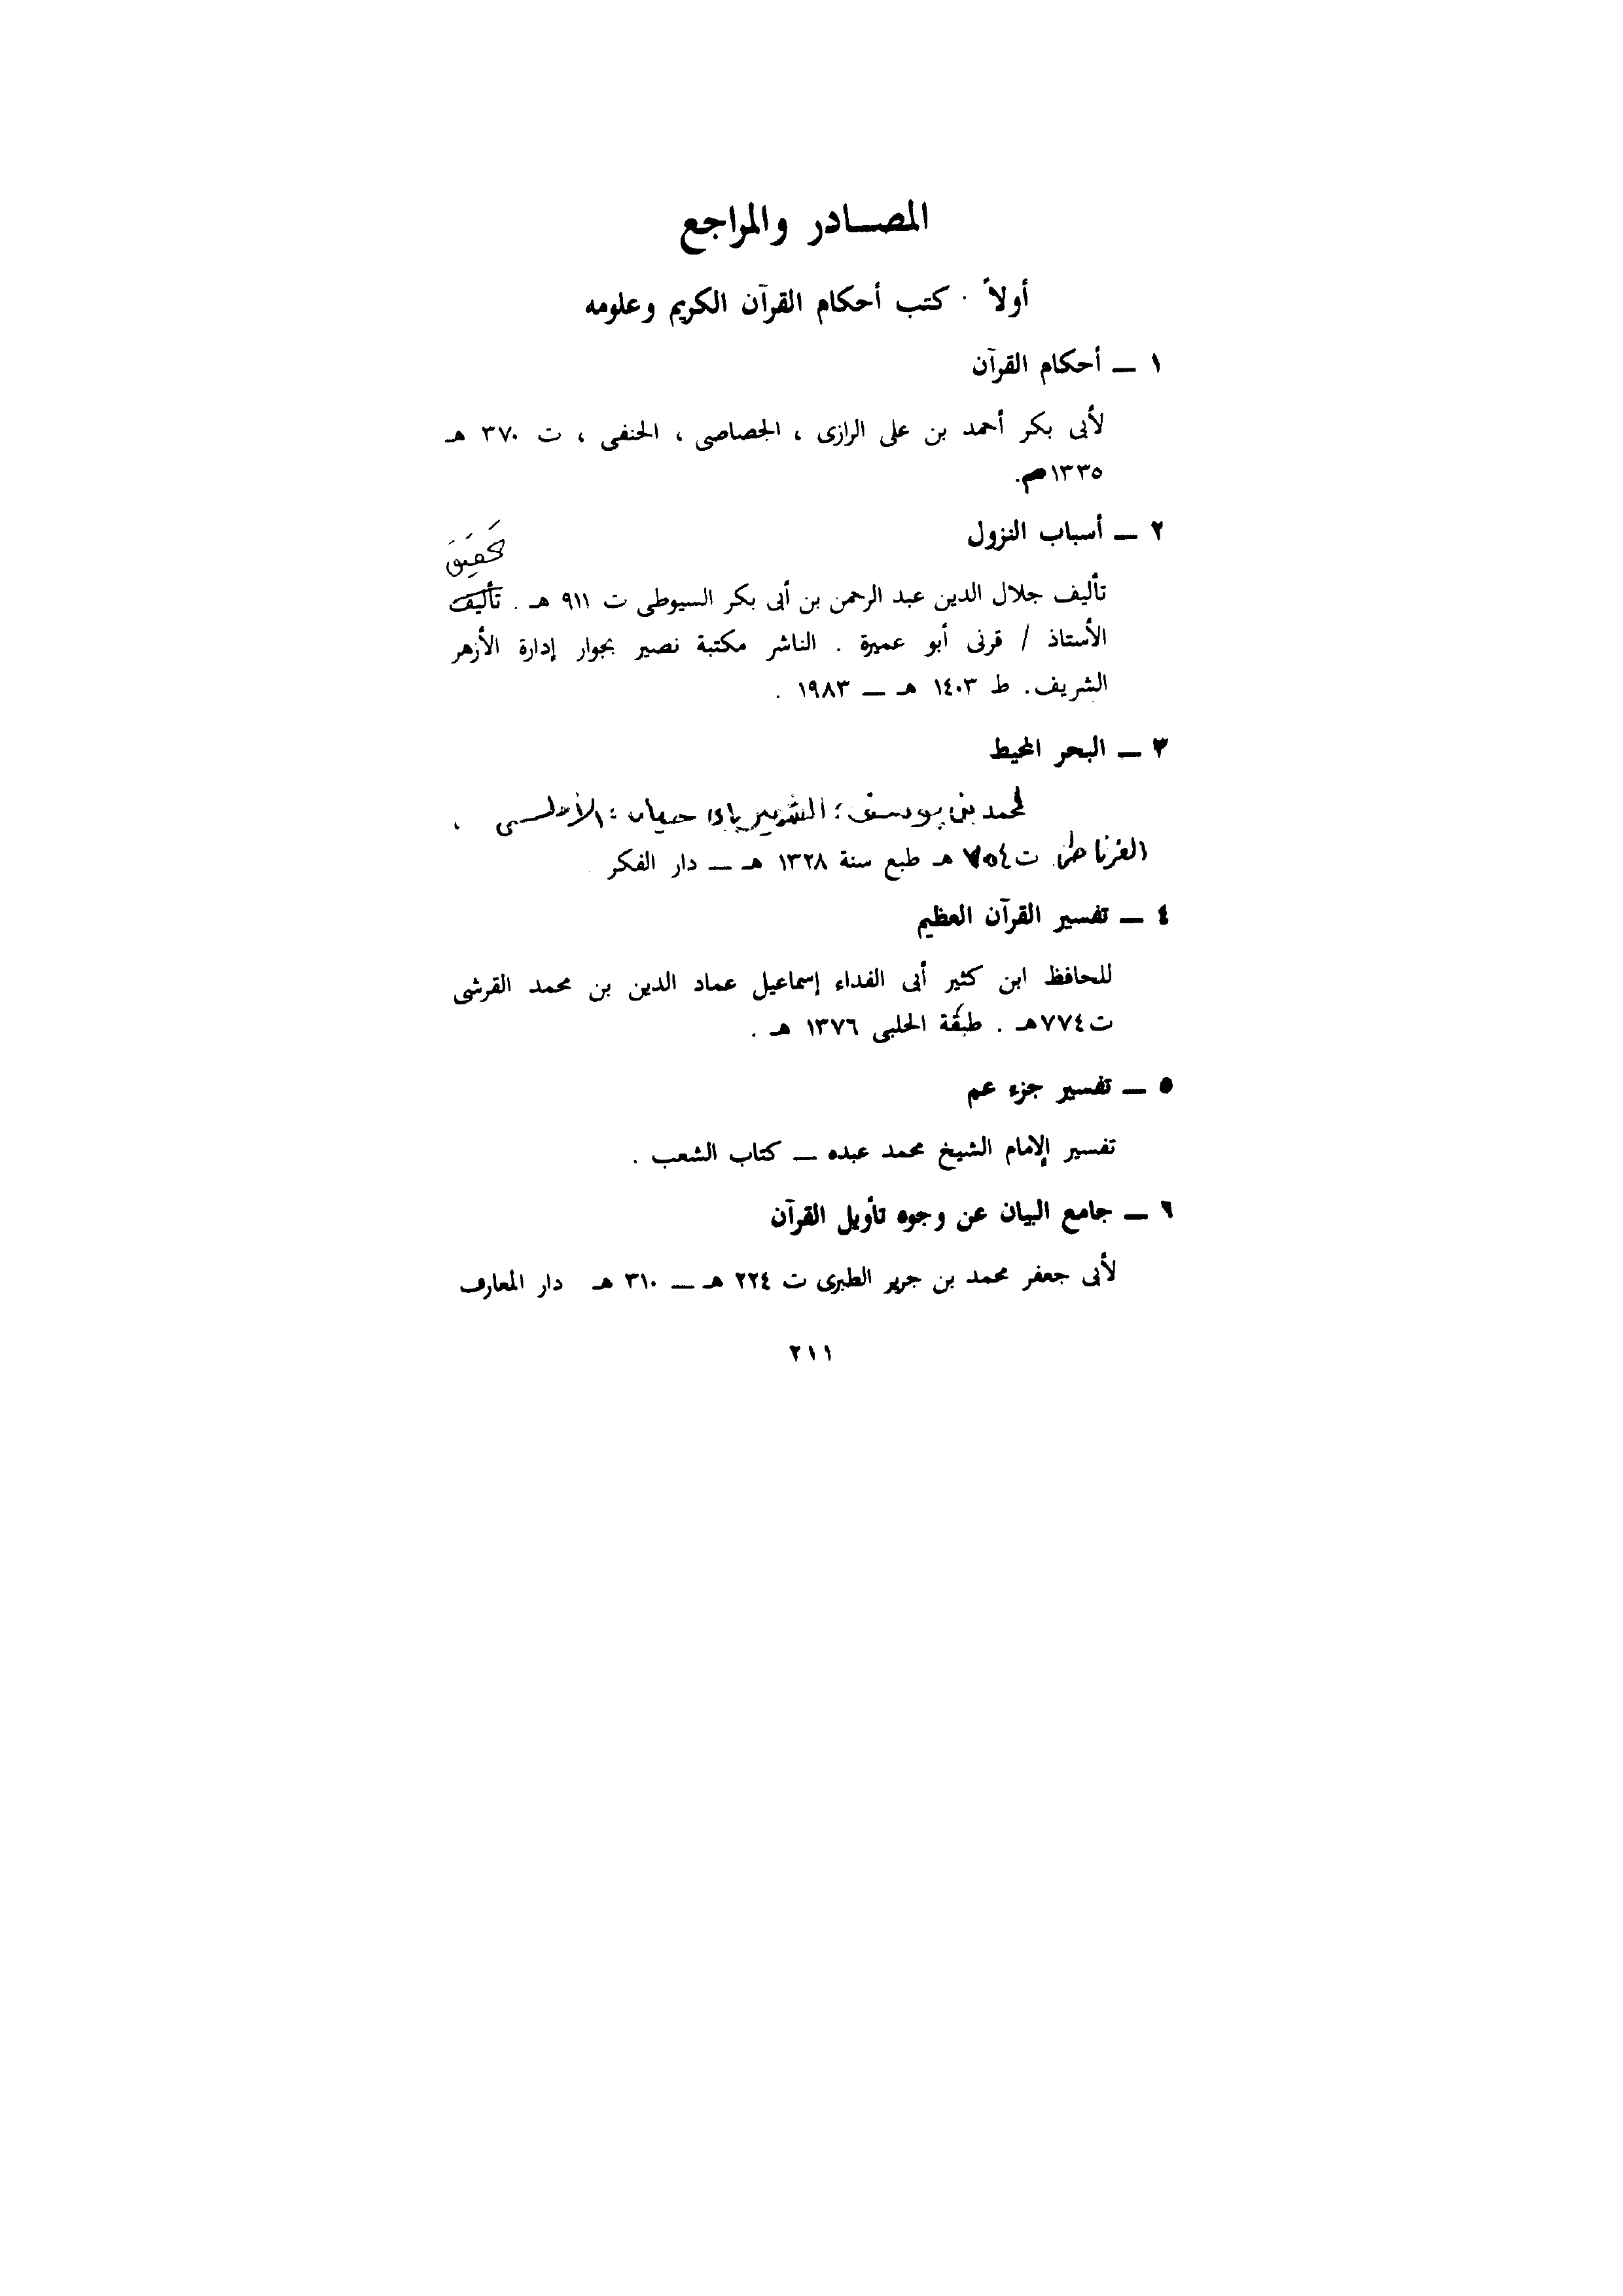 المصـــادر والمراجع
أولاً . كتب أحكام القرآن الكريم وعلومه
١ ــ أحكام القرآن
لأبى بكر أحمد بن على الرازى ، الجصاصى ، الحنفى ، ت ٣٧٠ هـ
١٣٣٥ م.
٢ ــ أسباب النزول
تحقيق
تأليف جلال الدين عبد الرحمن بن أبى بكر السيوطى ت ٩١١ هـ . تأليف
الأستاذ / قرنى أبو عميرة . الناشر مكتبة نصير بجوار إدارة الأزهر
الشريف. ط ١٤٠٣ هـ ــ ١٩٨٣ .
٣ ــ البحر المحيط
لمحمد بن يوسف ، الشهير بأبى حيان ، الأندلسى ،
الغرناطى ت ٧٥٤ هـ طبع سنة ١٣٢٨ هـ ــ دار الفكر
٤ ــ تفسير القرآن العظيم
للحافظ ابن كثير أبى الفداء إسماعيل عماد الدين بن محمد القرشى
ت ٧٧٤هـ . طبقة الحلبى ١٣٧٦ هـ .
٥ ــ تفسير جزء عم
تفسير الإمام الشيخ محمد عبده ــ كتاب الشعب .
٦ ــ جامع البيان عن وجوه تأويل القرآن
لأبى جعفر محمد بن جرير الطبرى ت ٢٢٤ هـ ــ ٣١٠ هـ دار المعارف
٢١١